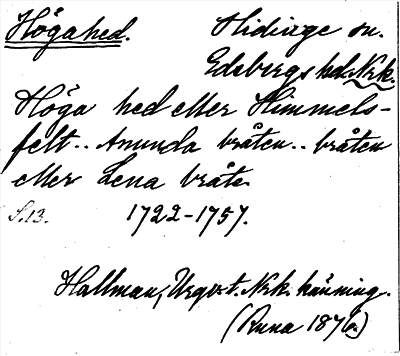 Högahed.
Hidinge sn.
Edsbergs hd. Nrk.
Höga hed eller Himmels-
felt.. Amunda bråten.. bråten
eller Lena bråte.
S.13. 1722-1757.
Hallman, Urgvst. Nrk. känning.
(Runa 1876.)